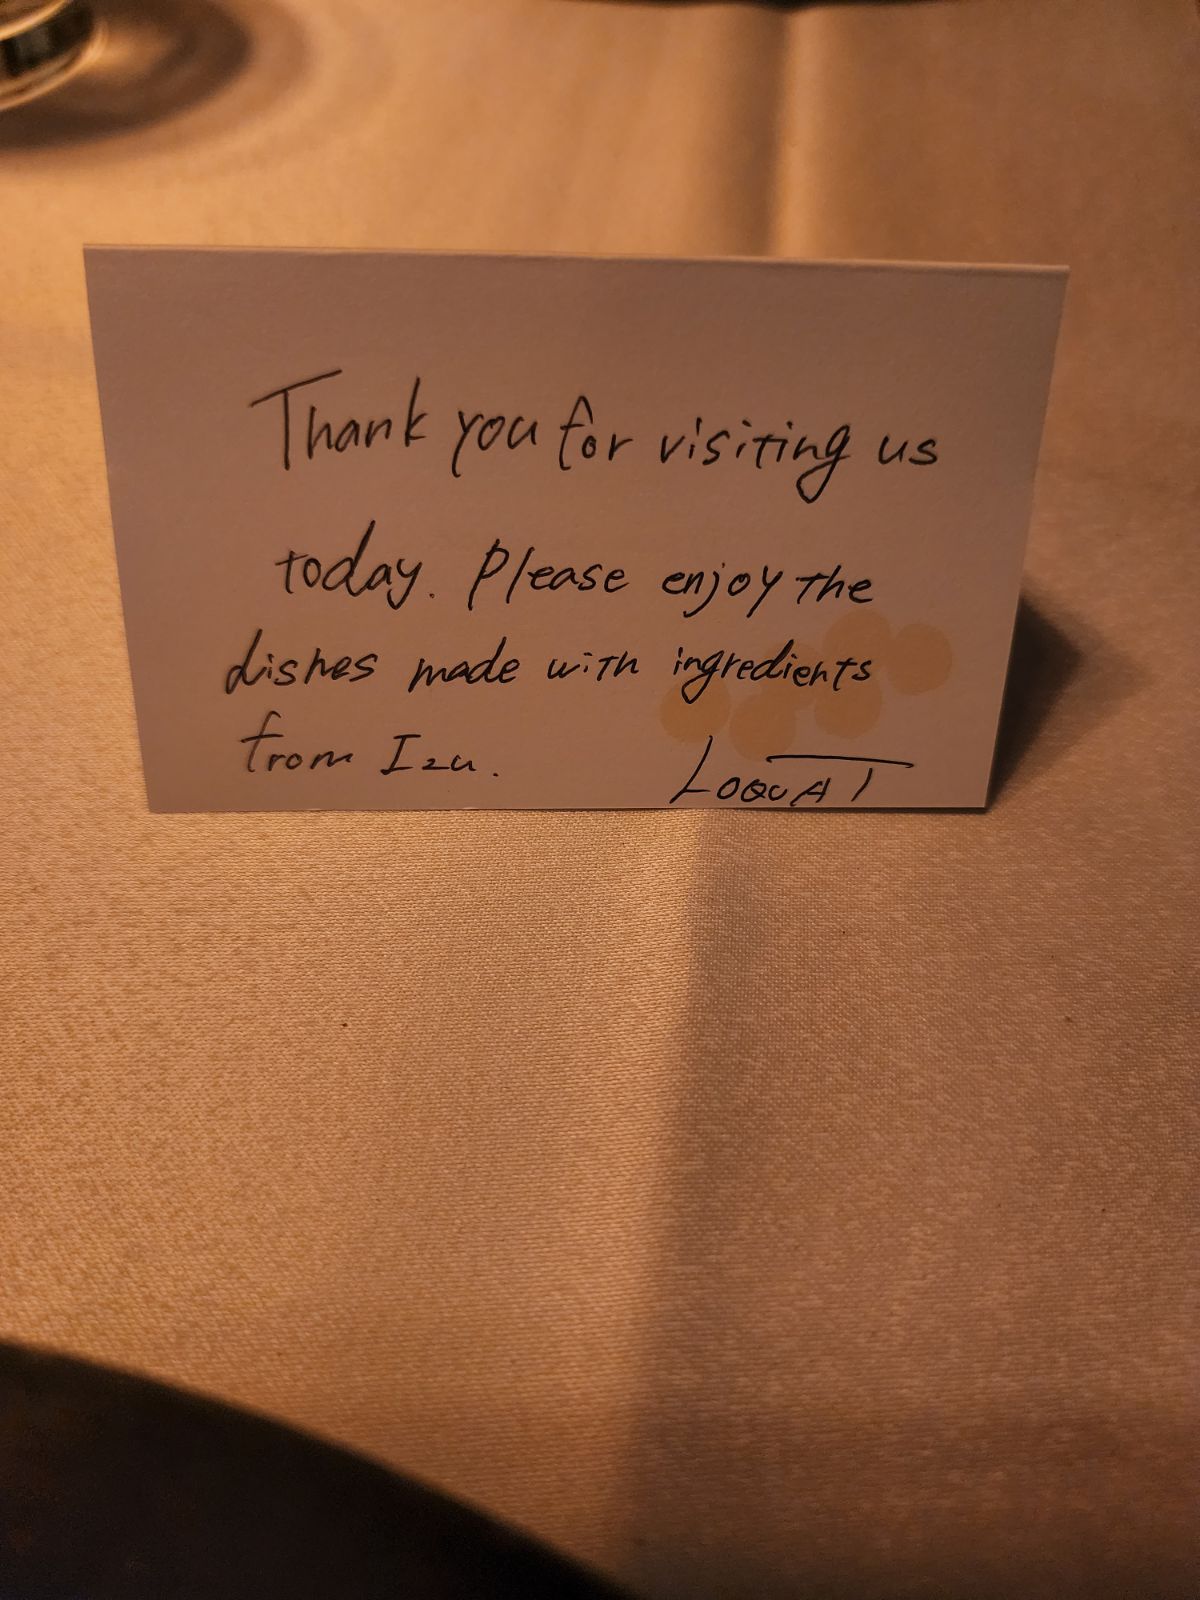 Thank you for visiting us
today. Please enjoy the
dishes made with ingredients
from Izu.
LOQUAT